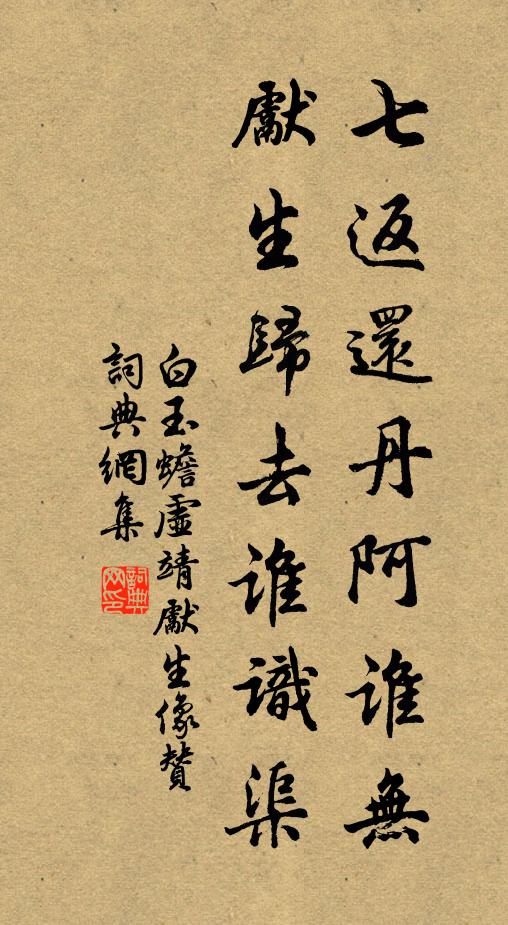 七返還丹阿誰無
獻生歸去誰識渠
白玉蟾虛靖獻生像贊
詞典網集
詞典網印